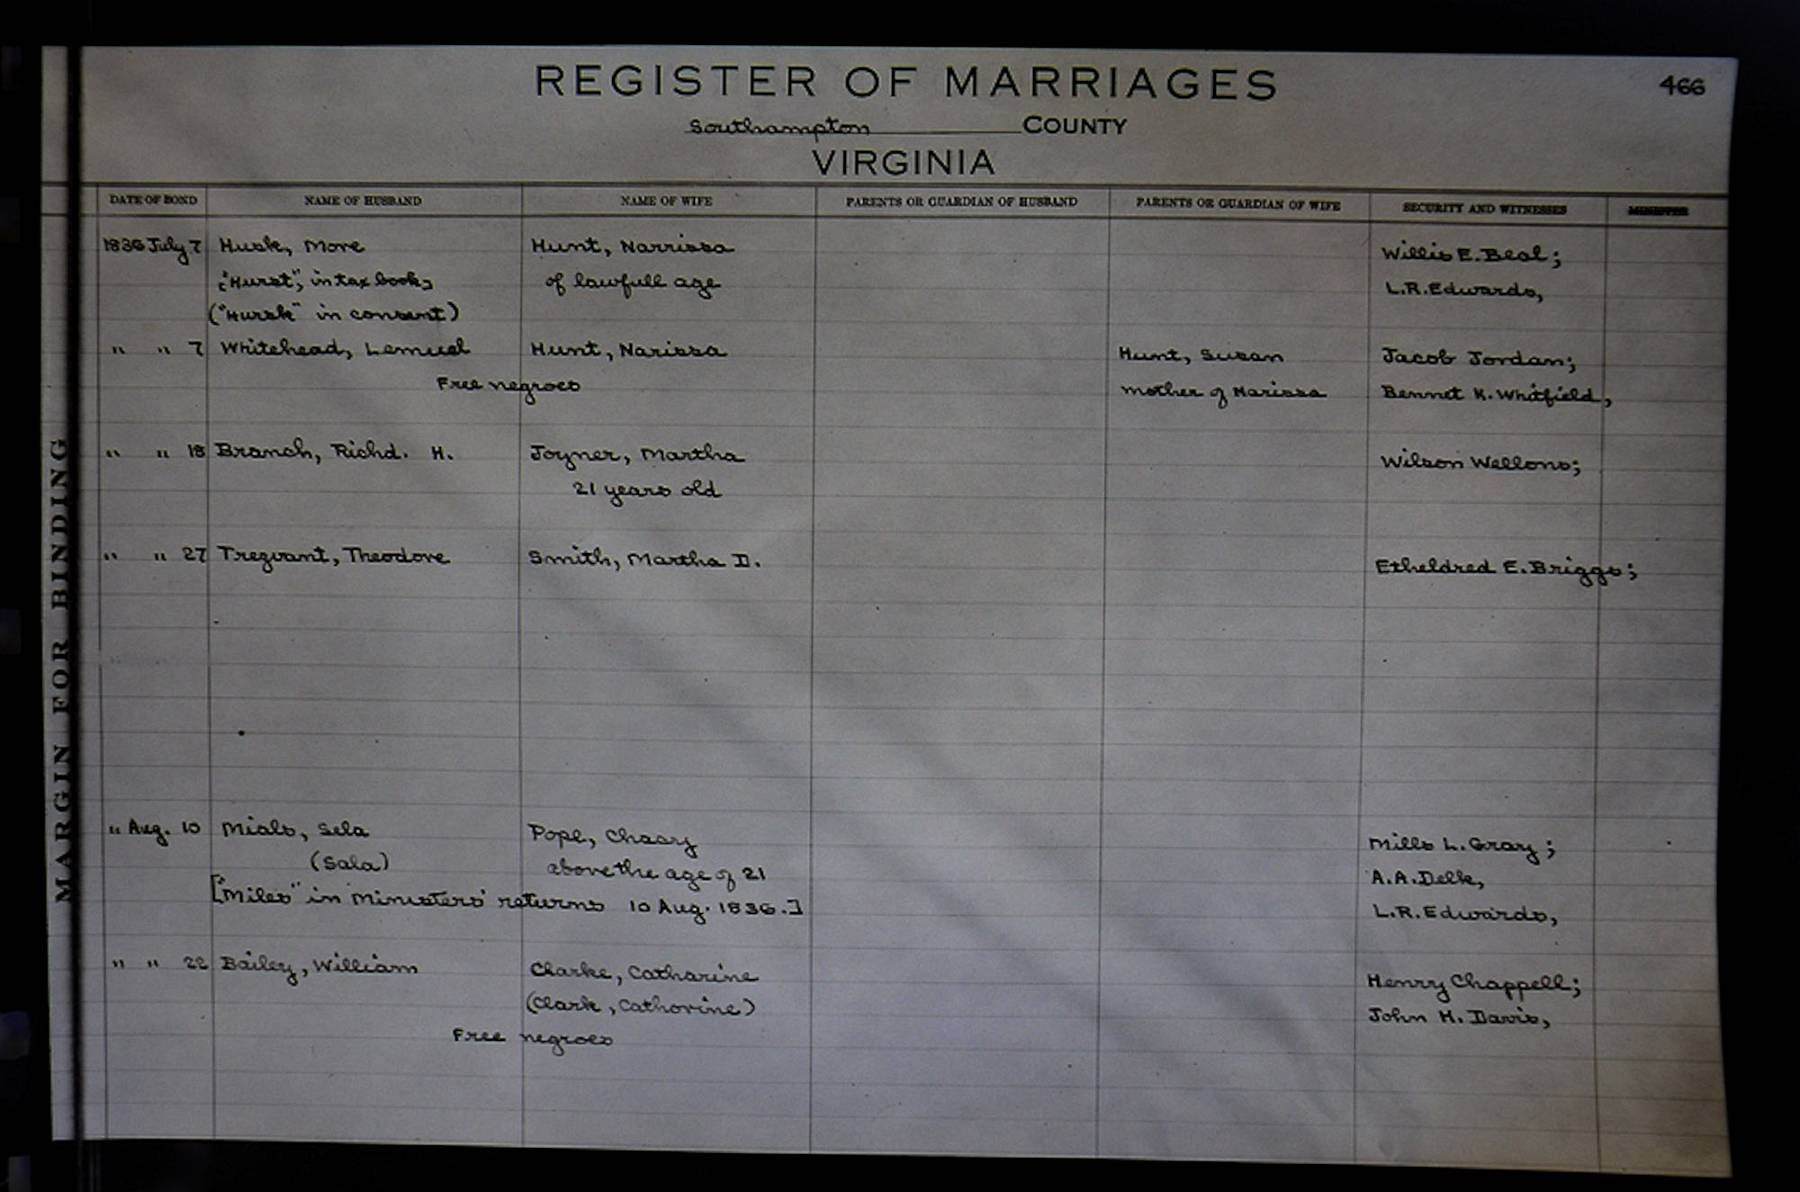 REGISTER OF MARRIAGES
466
Southampton COUNTY
VIRGINIA
MARGIN FOR BINDING
DATE OF BOND NAME OF HUSBAND NAME OF WIFE PARENTS OR GUARDIAN OF HUSBAND PARENTS OR GUARDIAN OF WIFE SECURITY AND WITNESSES MINISTER
1836 July 7 Husk, More Hunt, Narrissa Willis E. Beal;
["Hurst", in tax book] of lawfull age L.R. Edwards,
("Hursk" in consent)
" " 7 Whitehead, Lemuel Hunt, Narissa Hunt, Susan Jacob Jordan;
Free negroes mother of Narissa Bennet K. Whitfield,
" " 18 Branch, Richd. H. Joyner, Martha Wilson Wellons;
21 years old
" " 27 Trezvant, Theodore Smith, Martha D. Etheldred E. Briggs;
" Aug. 10 Mials, Sela Pope, Chasy Mills L. Gray;
(Sala) above the age of 21 A.A. Delk,
["Miles" in Ministers' returns 10 Aug. 1836.] L.R. Edwards,
" " 22 Bailey, William Clarke, Catharine Henry Chappell;
(Clark, Cathorine) John H. Davis,
Free negroes